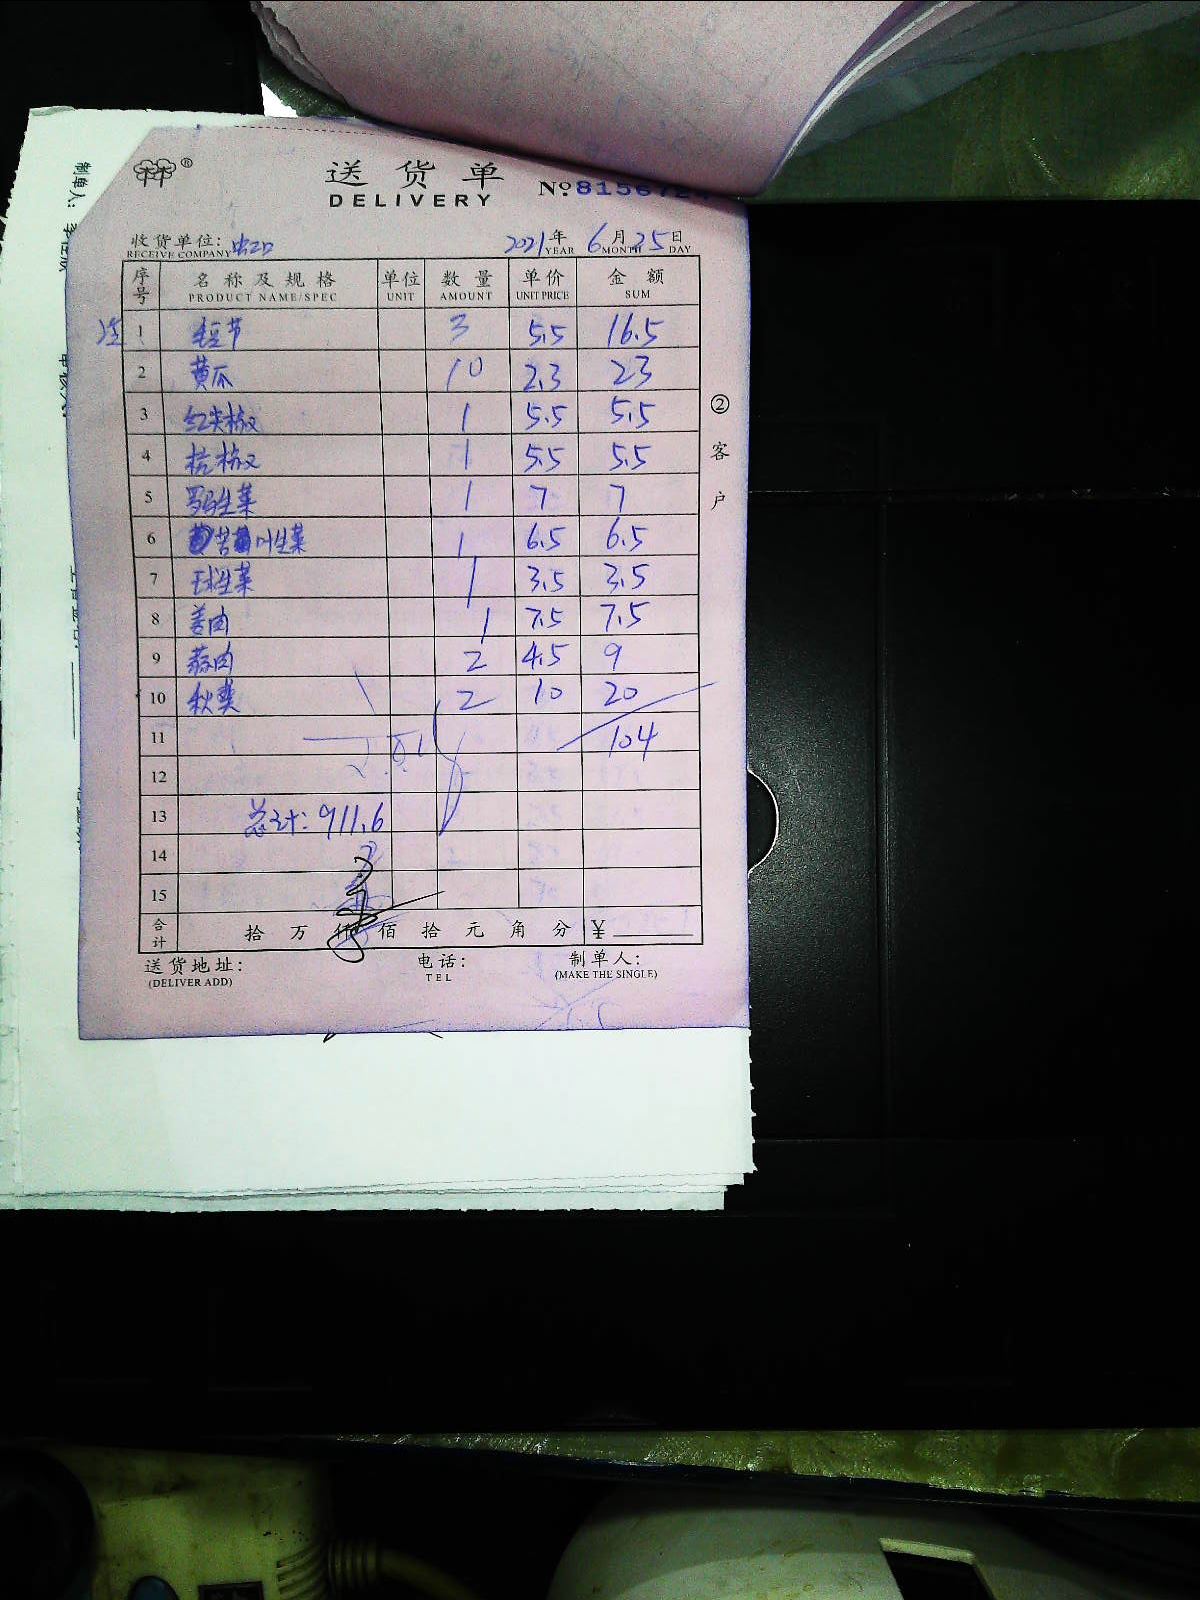 制单人:
®
送货单
DELIVERY
Nº 81567
收货单位: 出口
RECEIVE COMPANY
2021年 6月25日
YEAR MONTH DAY
序号 名称及规格 单位 数量 单价 金额
PRODUCT NAME/SPEC UNIT AMOUNT UNIT PRICE SUM
1 毛豆节 3 5.5 16.5
2 黄瓜 10 2.3 23
3 红尖椒 1 5.5 5.5
4 杭椒 1 5.5 5.5
5 罗马生菜 1 7 7
6 苦叶生菜 1 6.5 6.5
7 球生菜 1 3.5 3.5
8 姜肉 1 7.5 7.5
9 蒜肉 2 4.5 9
10 秋葵 2 10 20
11 104
12
13 总计: 911.6
14
15
合计 拾 万 仟 佰 拾 元 角 分 ¥
送货地址: 电话: 制单人:
(DELIVER ADD) TEL (MAKE THE SINGLE)
② 客户